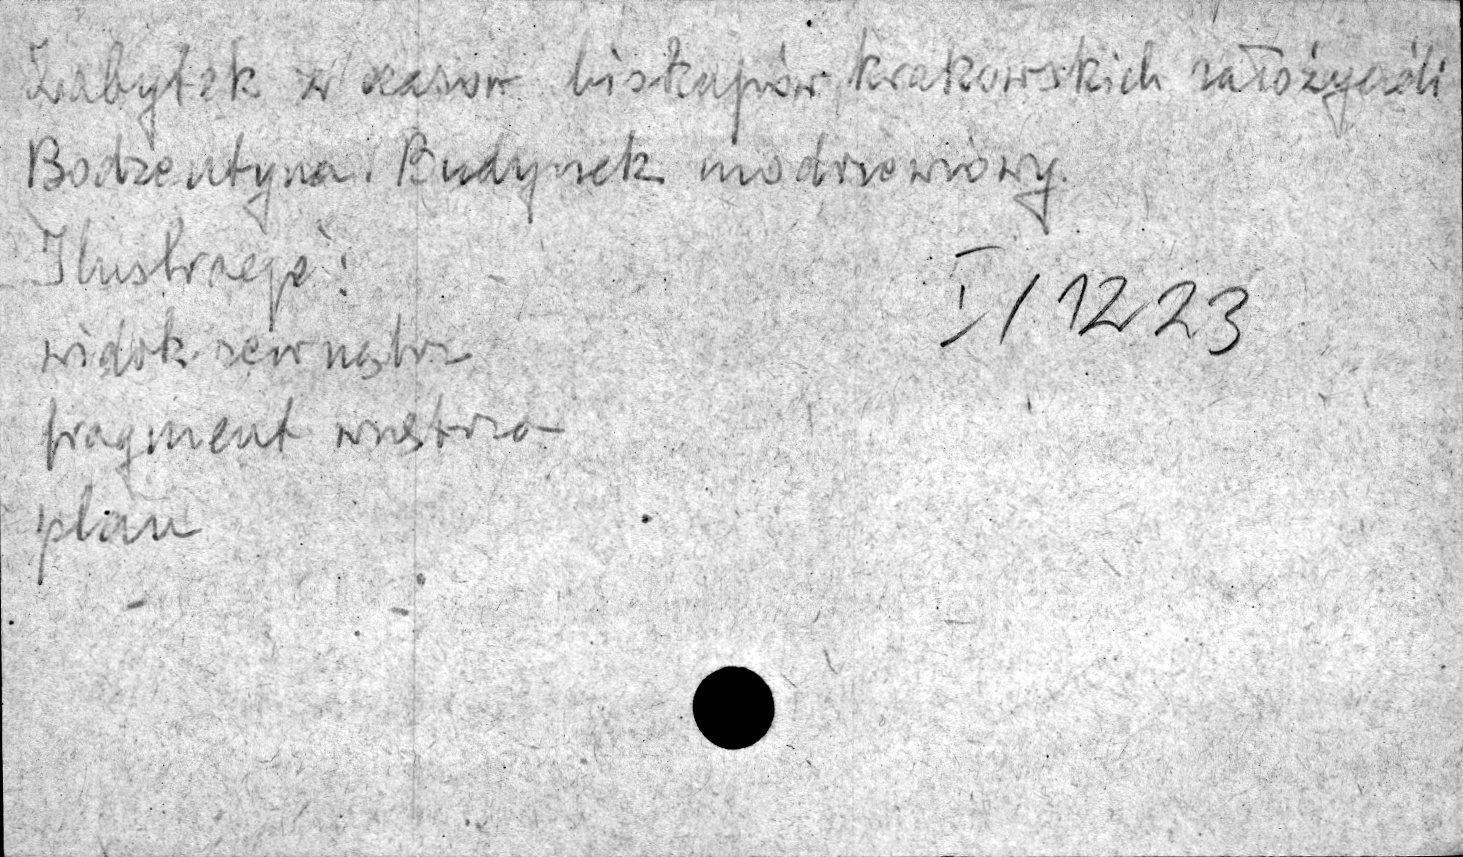 Zabytek z czasów biskupów krakowskich założycieli
Bodzentyna. Budynek modrzewiowy.
Ilustracje:
I/1223
widok zewnątrz
fragment wnętrza
plan